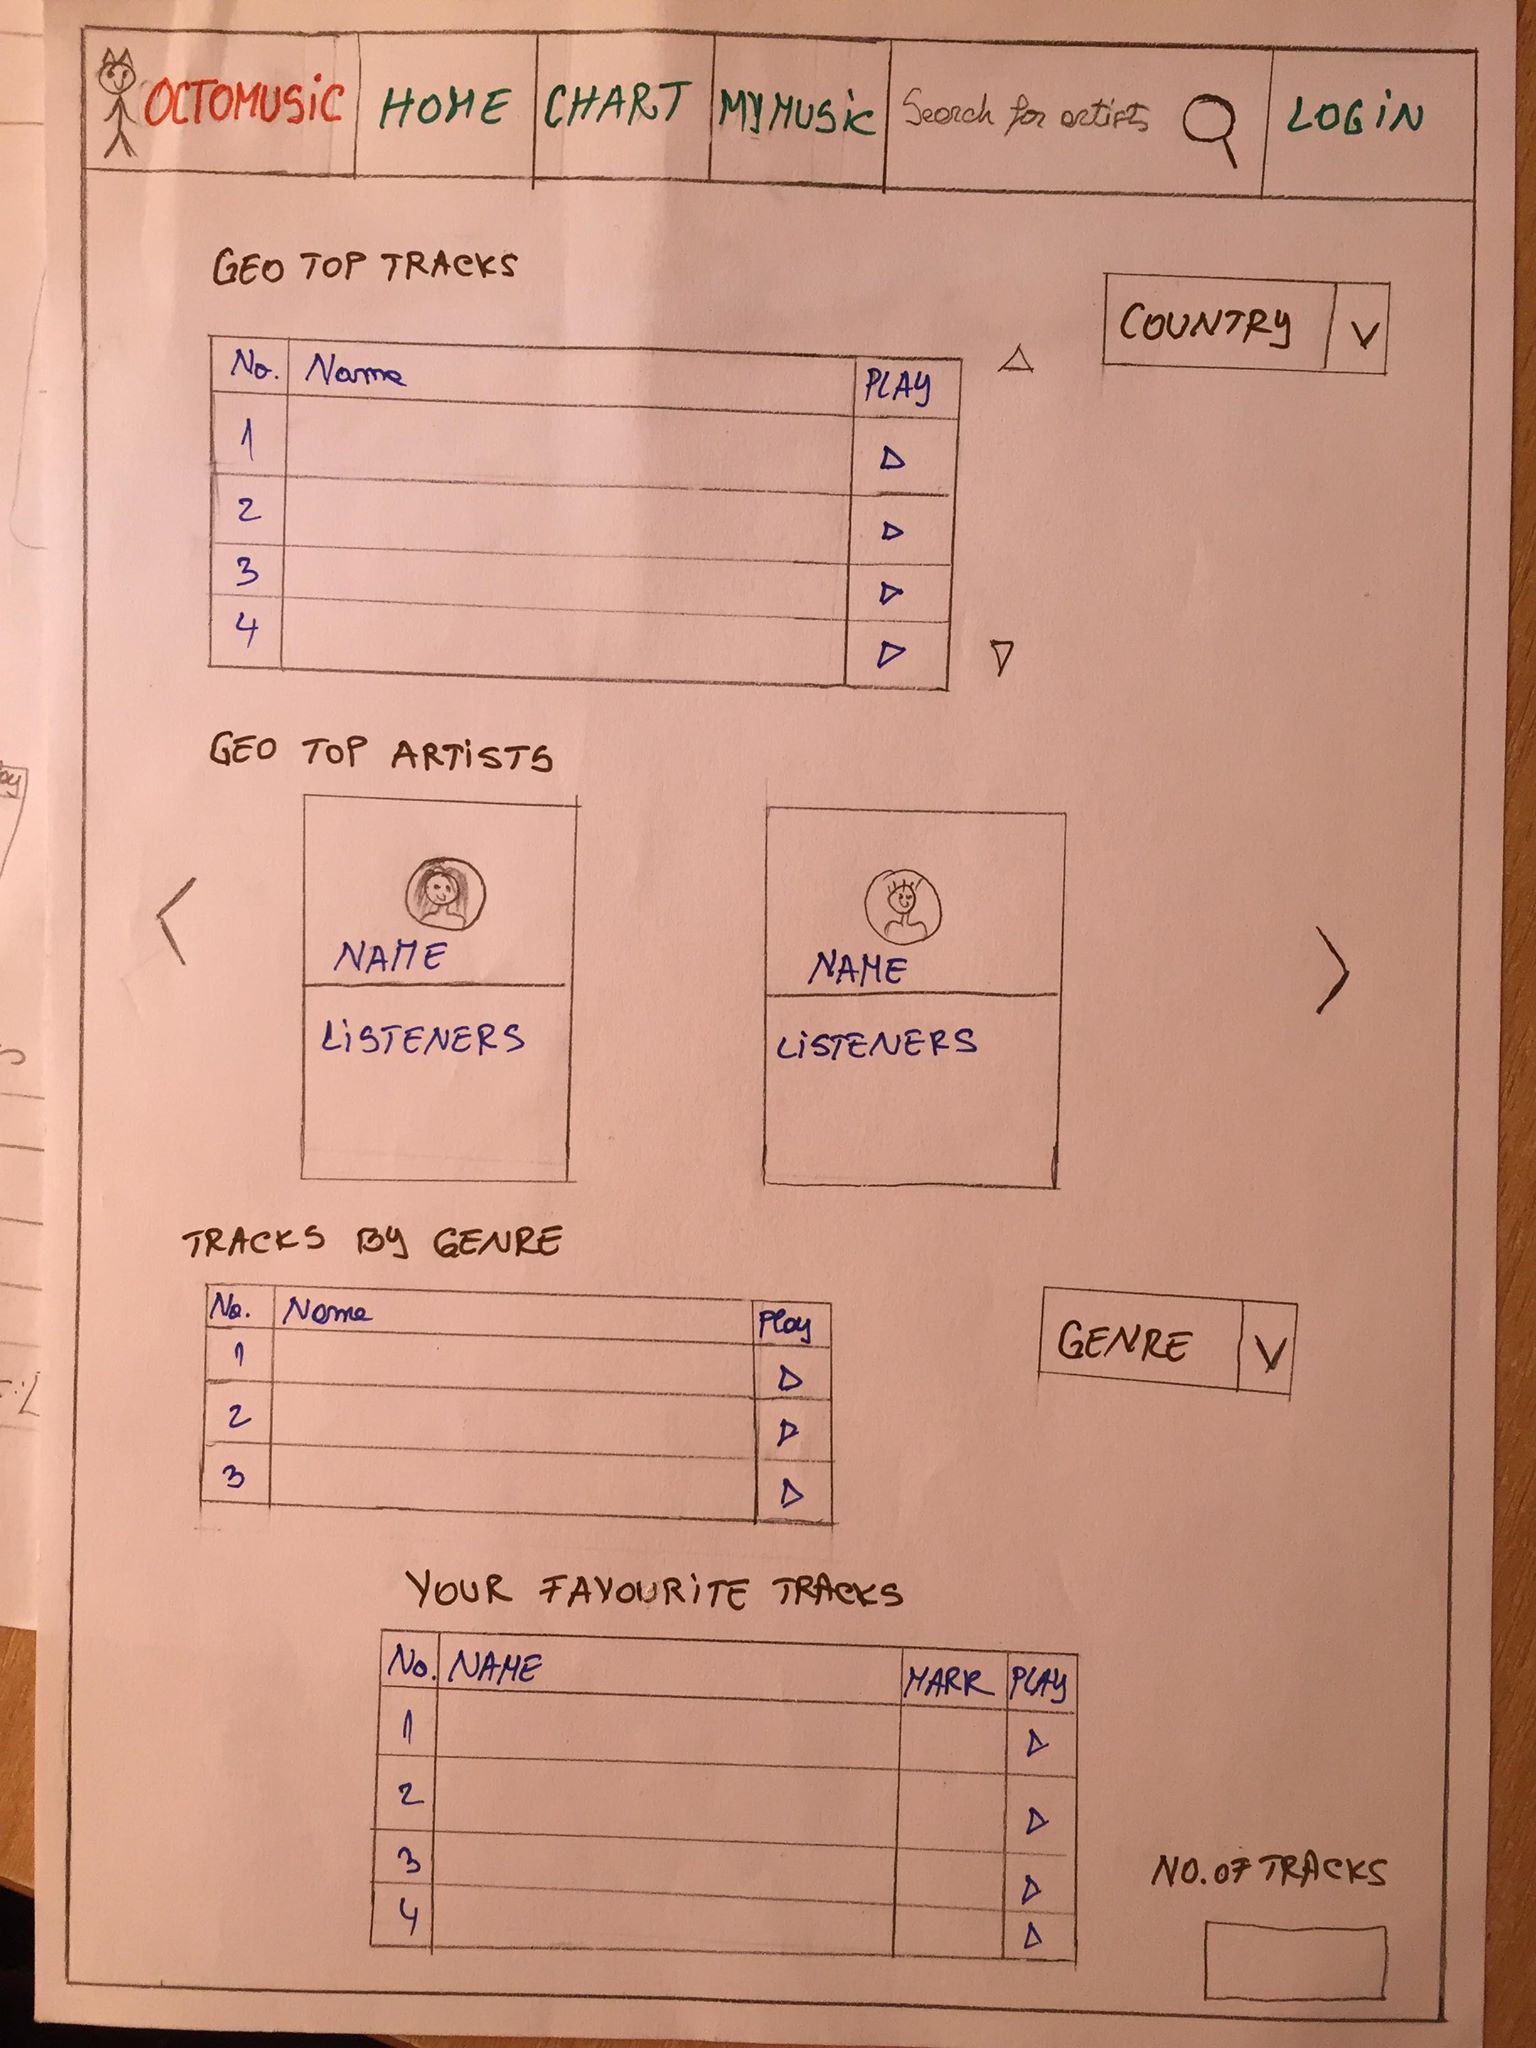 OCTOMUSiC HOME CHART MYMUSiC Search for artists LOGiN
GEO TOP TRACKS
COUNTRY V
No. Name PLAY
1
2
3
4
GEO TOP ARTiSTS
NAME NAME
LiSTENERS LiSTENERS
TRACKS BY GENRE
No. Name Play
GENRE V
1
2
3
YOUR FAVOURiTE TRACKS
No. NAME MARK PLAY
1
2
3
4
NO. OF TRACKS